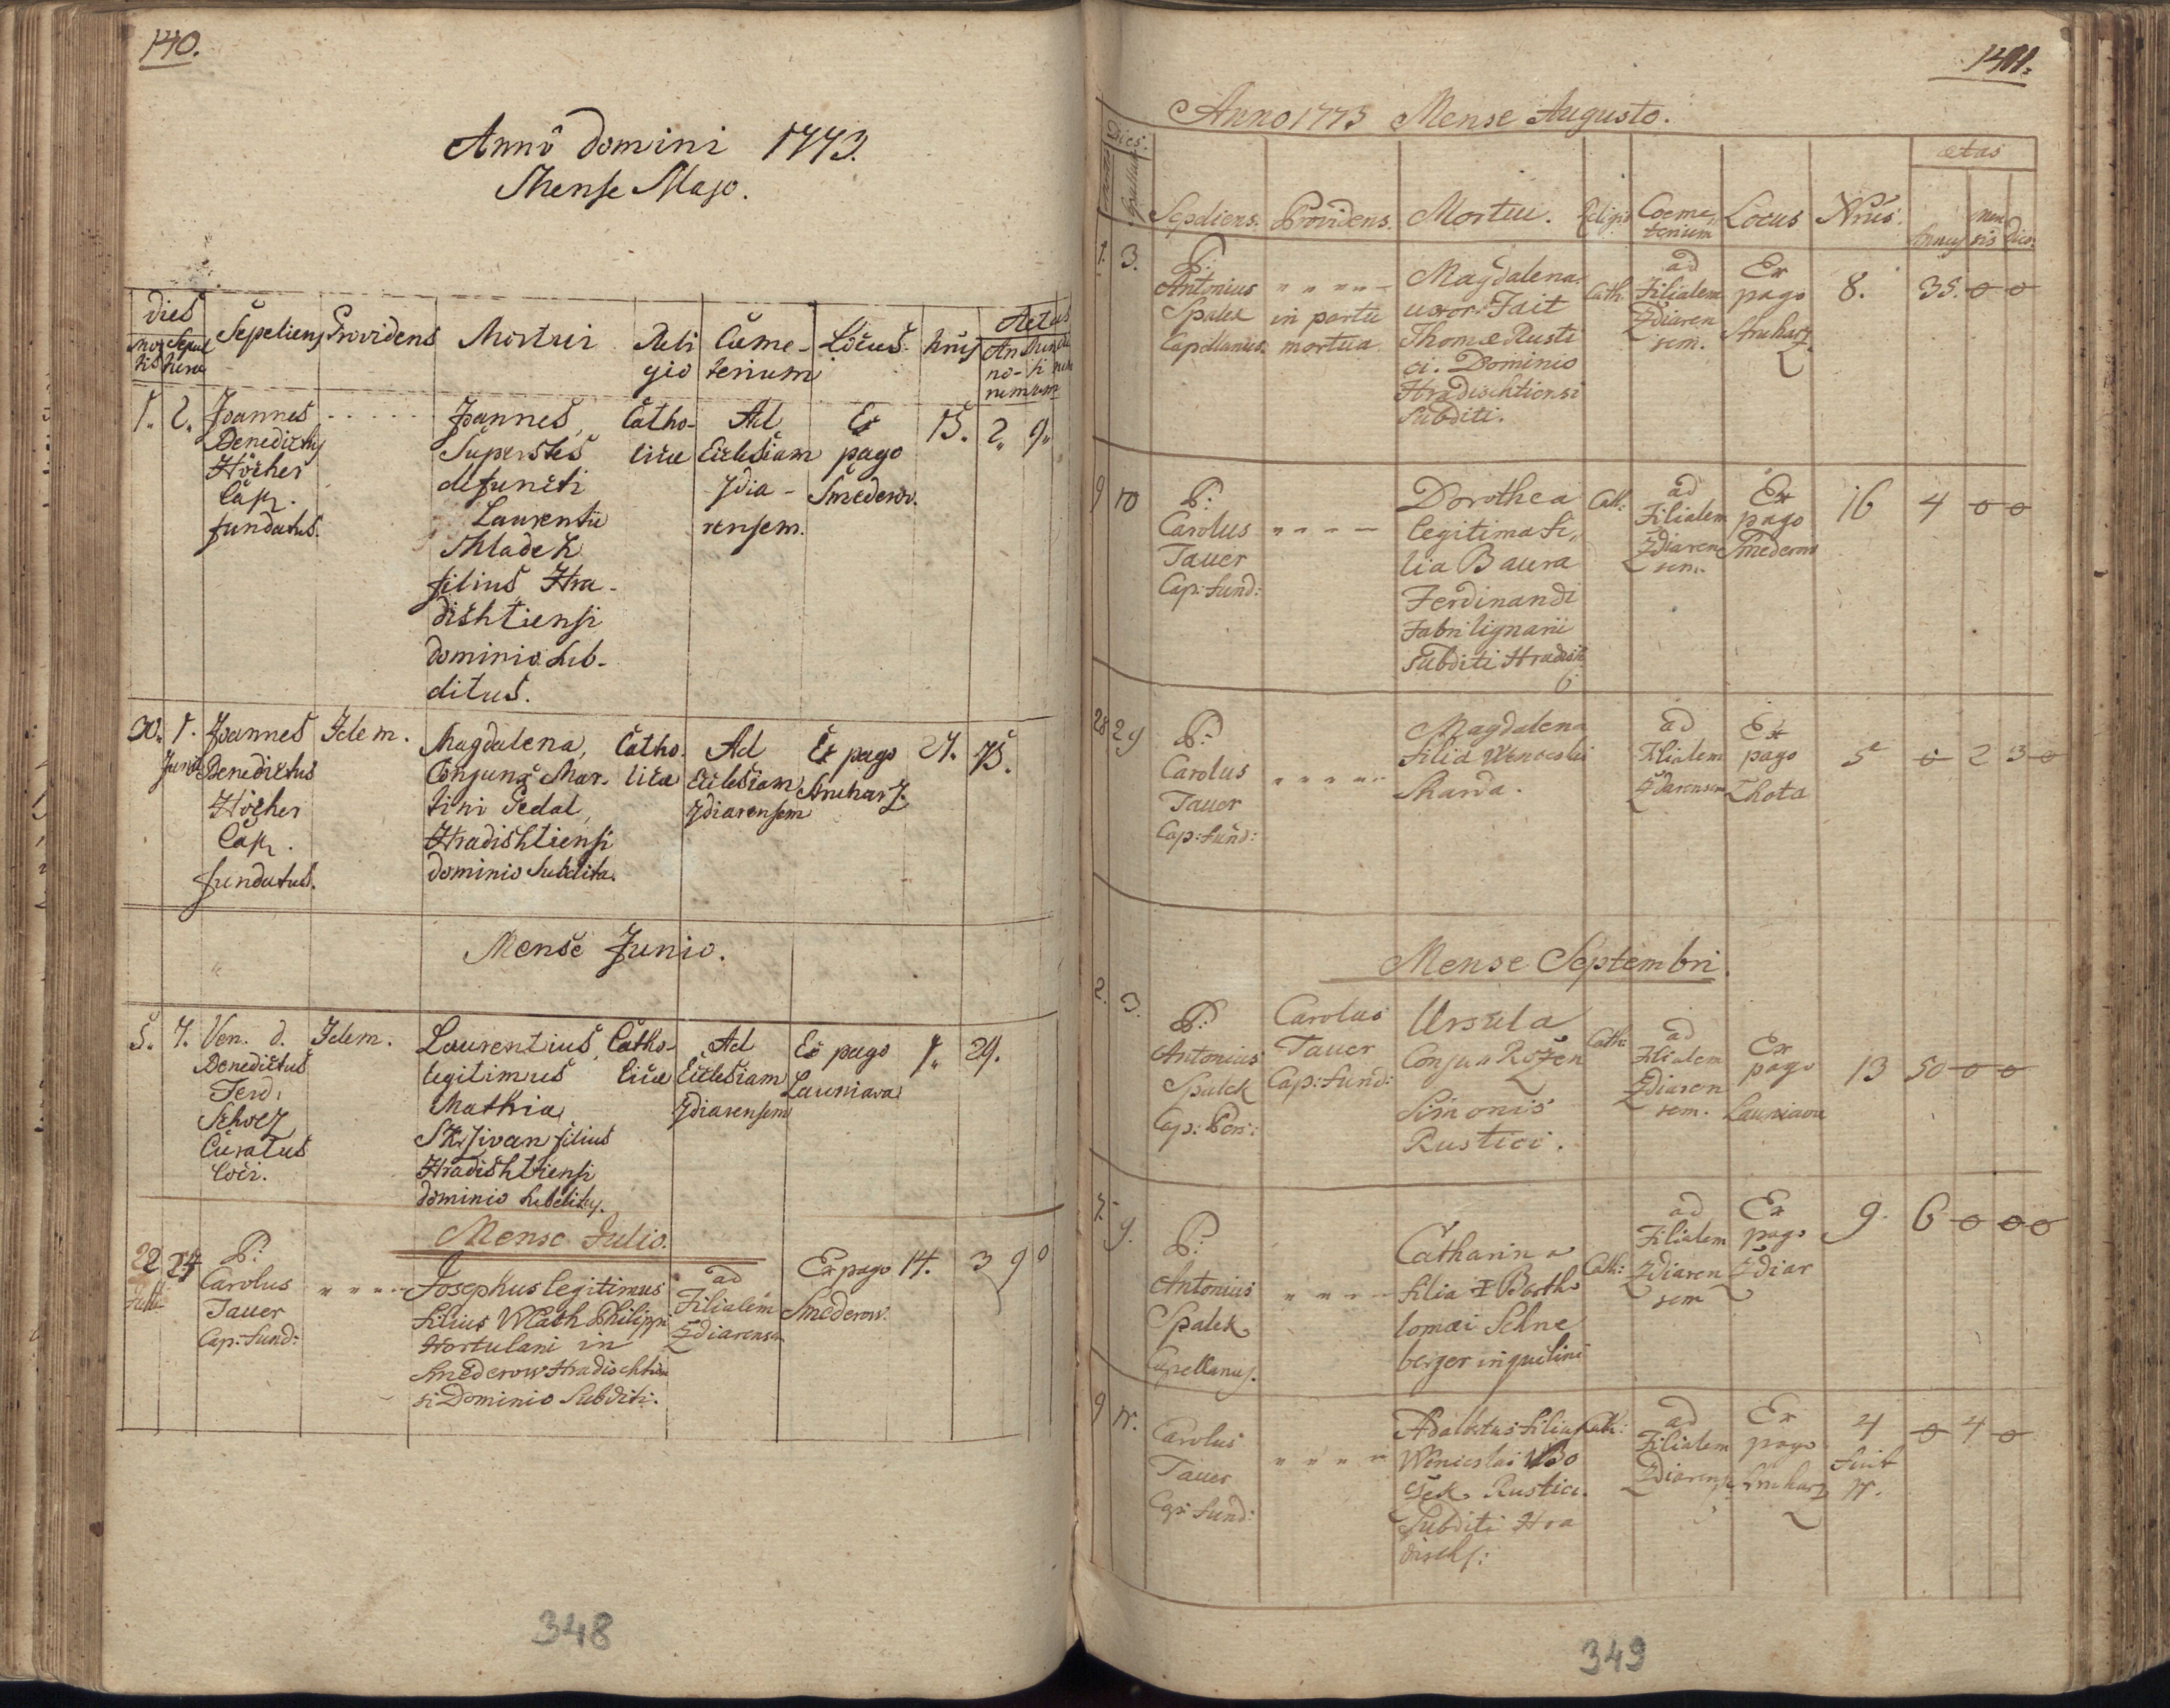 140.
Anno domini 1773.
Mense Majo.
dies
Mor Sepul
tis turae
Sepeliens
Providens
Mortui
Reli
gio
Caeme-
terium
Locus
Nrus
Aetas
An
no-
1. 2. Joannes
Benedictus
Höcher
Cap.
fundatus.
Joannes,
Superstes
defuncti
Laurentii
Mladek
filius Hra-
dishtiensi
dominio sub-
ditus.
Catho-
lica
Ad
Ecclesiam
Zdia-
rensem.
Ex
pago
Smederov.
15. 2. 9.
30. 1. Joannes Idem.
Junii Benedictus
Höcher
Cap.
fundatus.
Magdalena,
Conjunx Mar-
tini Sedal,
Hradishtiensi
dominio subdita.
Catho-
lica
Ad
Ecclesiam
Zdiarensem
Ex pago
27. 75.
Mense Junio.
5. 7. Ven. d. Idem.
Benedictus
Ferd.
Scholz
Curatus
loci.
Laurentius,
legitimus
Mathia
Skrzivan filius
Hradishtiensi
dominio subditus.
Catho-
lica
Ad
Ecclesiam
Zdiarensem
Ex pago
Launiava
29.
Mense Julio.
22 24 P:
Julii Carolus
Tauer
Cap: fund:
Josephus legitimus
filius Math Philippi
Hortulani in
Smederow Hradischtien
si Dominio Subditi.
ad
Filialem
Zdiarensem
Ex pago
Smederow.
14. 3 9 0
348
141.
Anno 1773 Mense Augusto.
Dies.
Sepeliens. Providens. Mortui. Religio
Coeme,,
terium
Locus Nrus.
aetas
Annus
men
sis
dies
1. 3. P:
Antonius
Spalek
Capellanus.
in partu
mortua
Magdalena
uxor Fait
Thomae Rusti
ci. Dominio
Hradischtiensi
Subditi.
Cath.
ad
Filialem
Zdiaren
sem.
Ex
pago
8. 35. 0 0
9 10 P:
Carolus
Tauer
Cap: fund:
Dorothea
legitima fi,,
lia Baura
Ferdinandi
Fabri lignarii
subditi Hradisch
Cath:
ad
Filialem
Zdiaren
sem.
Ex
pago
Smederow
16 4 0 0
28 29 P:
Carolus
Tauer
Cap: fund:
Magdalena
filia Wenceslai
ad
Filialem
Zdiarensem
Ex
pago
Lhota
5 0 2 3 0
Mense Septembri.
2. 3. P:
Antonius
Spalek
Carolus
Tauer
Cap: fund:
Ursula
Conjux Rozen
Simonis
Rustici.
Cath:
ad
Filialem
Zdiaren
sem.
Ex
pago
Launiava
13 50 0 0
7. 9. P:
Antonius
Spalek
Capellanus.
Catharina
filia Bartho
lomaei Schne
berger inquilini
Cath:
ad
Filialem
Zdiaren
sem
Ex
pago
Zdiar
9. 6 0 0 0
9 11. Carolus
Tauer
Cap: fund:
Adalbertus filius
Wenceslai
Rustici.
Subditi Hra
disch:
Cath:
ad
Filialem
Zdiarensem
Ex
pago
4 0 4 0
fuit
349